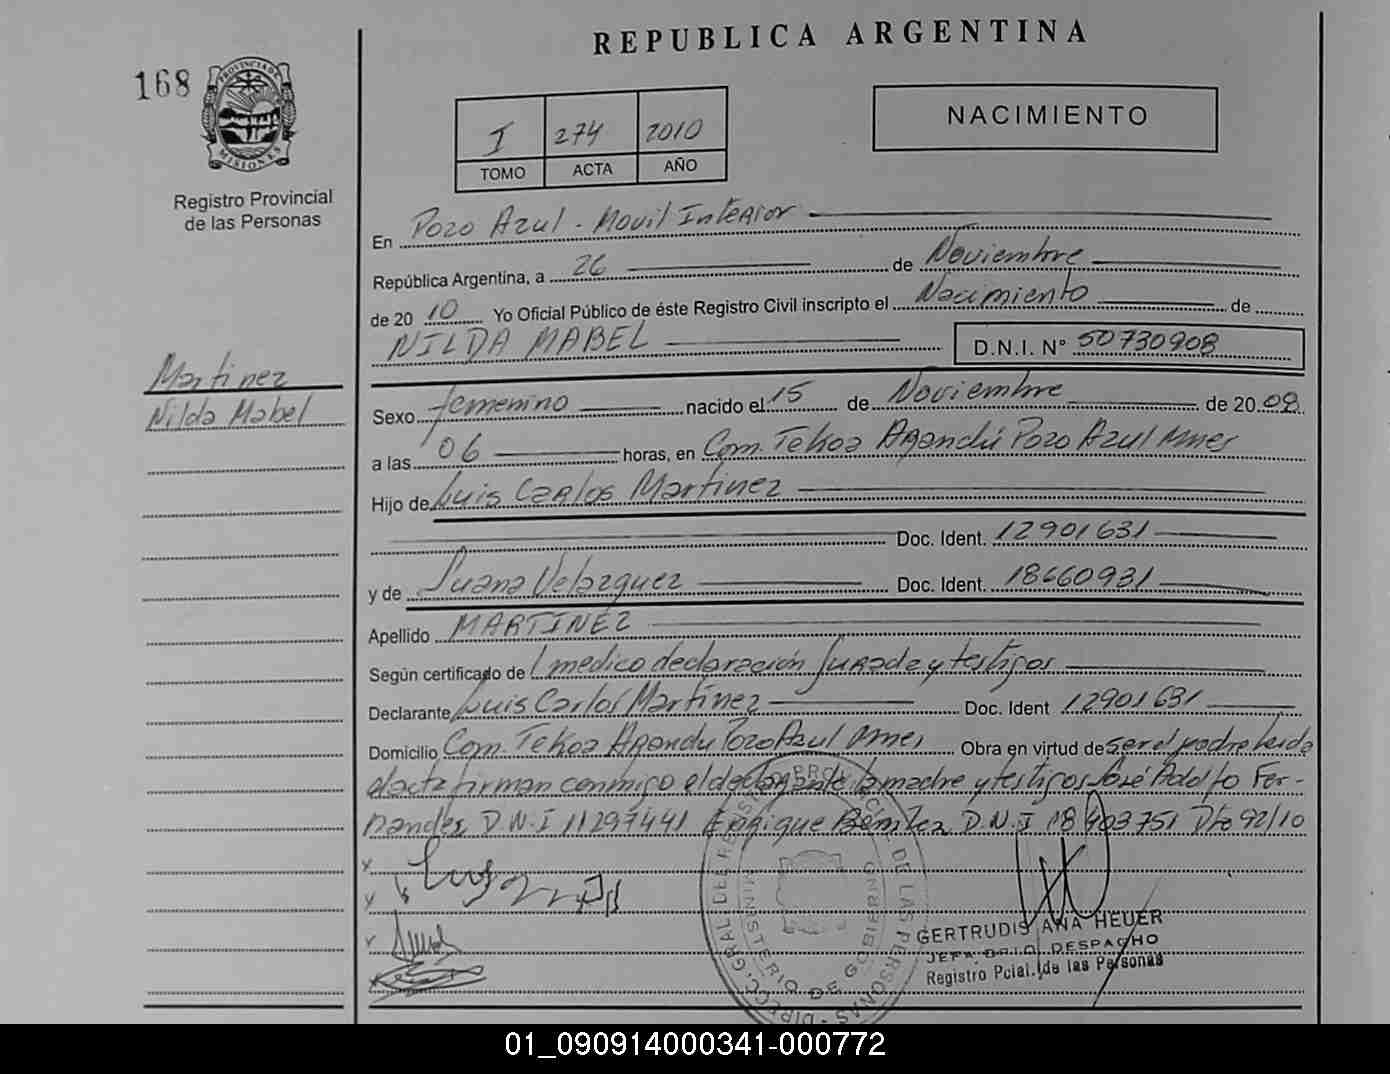 REPUBLICA ARGENTINA
168
PROVINCIA DE
MISIONES
Registro Provincial
de las Personas
I 274 2010
TOMO ACTA AÑO
NACIMIENTO
En Pozo Azul - Movil Interior
República Argentina, a 26 de Noviembre
de 2010 Yo Oficial Público de éste Registro Civil inscripto el Nacimiento de
NILDA MABEL D.N.I. N° 50730908
Martinez
Nilda Mabel
Sexo femenino nacido el 15 de Noviembre de 2008
a las 06 horas, en Com. Tekoa Arandú Pozo Azul Mnes
Hijo de Luis Carlos Martinez
Doc. Ident. 12901631
y de Juana Velazquez Doc. Ident. 18660931
Apellido MARTINEZ
Según certificado de l medico declaración Jurada y testigos
Declarante Luis Carlos Martinez Doc. Ident 12901631
Domicilio Com. Tekoa Arandu Pozo Azul Mnes Obra en virtud de ser el padre leida
el acta firman conmigo el declarante la madre y testigos José Adolfo Fer-
nandez D.N.I 11297441 Enrique Benitez D.N.I 18403751 Dto 92/10
GERTRUDIS ANA HEUER
JEFA DPTO. DESPACHO
Registro Pcial. de las Personas
01_090914000341-000772